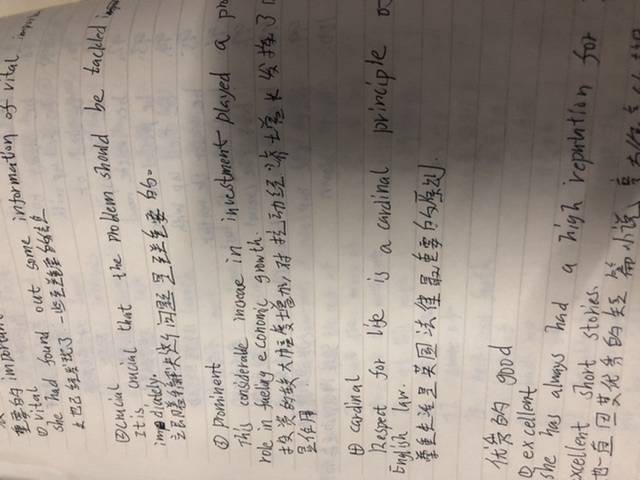 重要的 important
① vital
she had found out some information of vital
她已经发现了一些至关重要的信息
② crucial
It is crucial that the problem should be tackled
immediately.
立即着手解决这个问题是至关重要的。
③ prominent
This considerable increase in investment played a
role in fueling economic growth.
投资的较大幅度增加,对拉动经济增长发挥了
显作用
④ cardinal
Respect for life is a cardinal principle
English law.
尊重生命是英国法律最重要的原则.
优秀的 good
① excellent
she has always had a high reputation for
excellent short stories.
她一直因其优秀的短篇小说